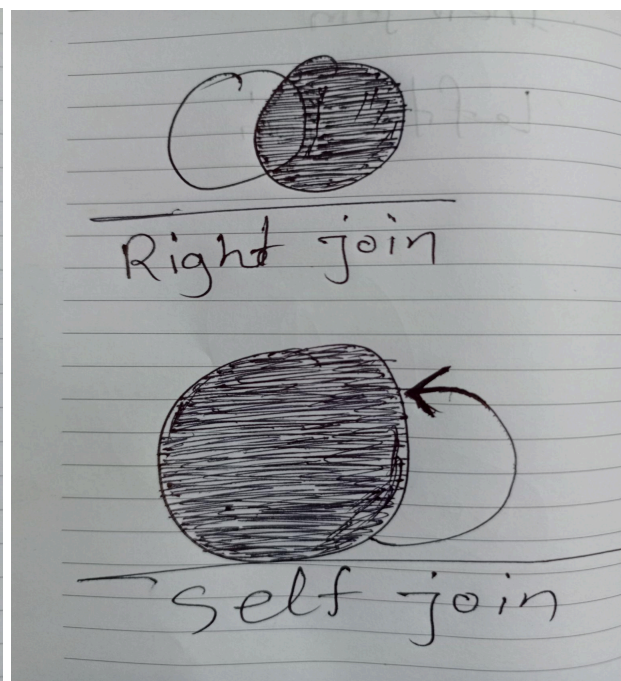 Right join
Self join